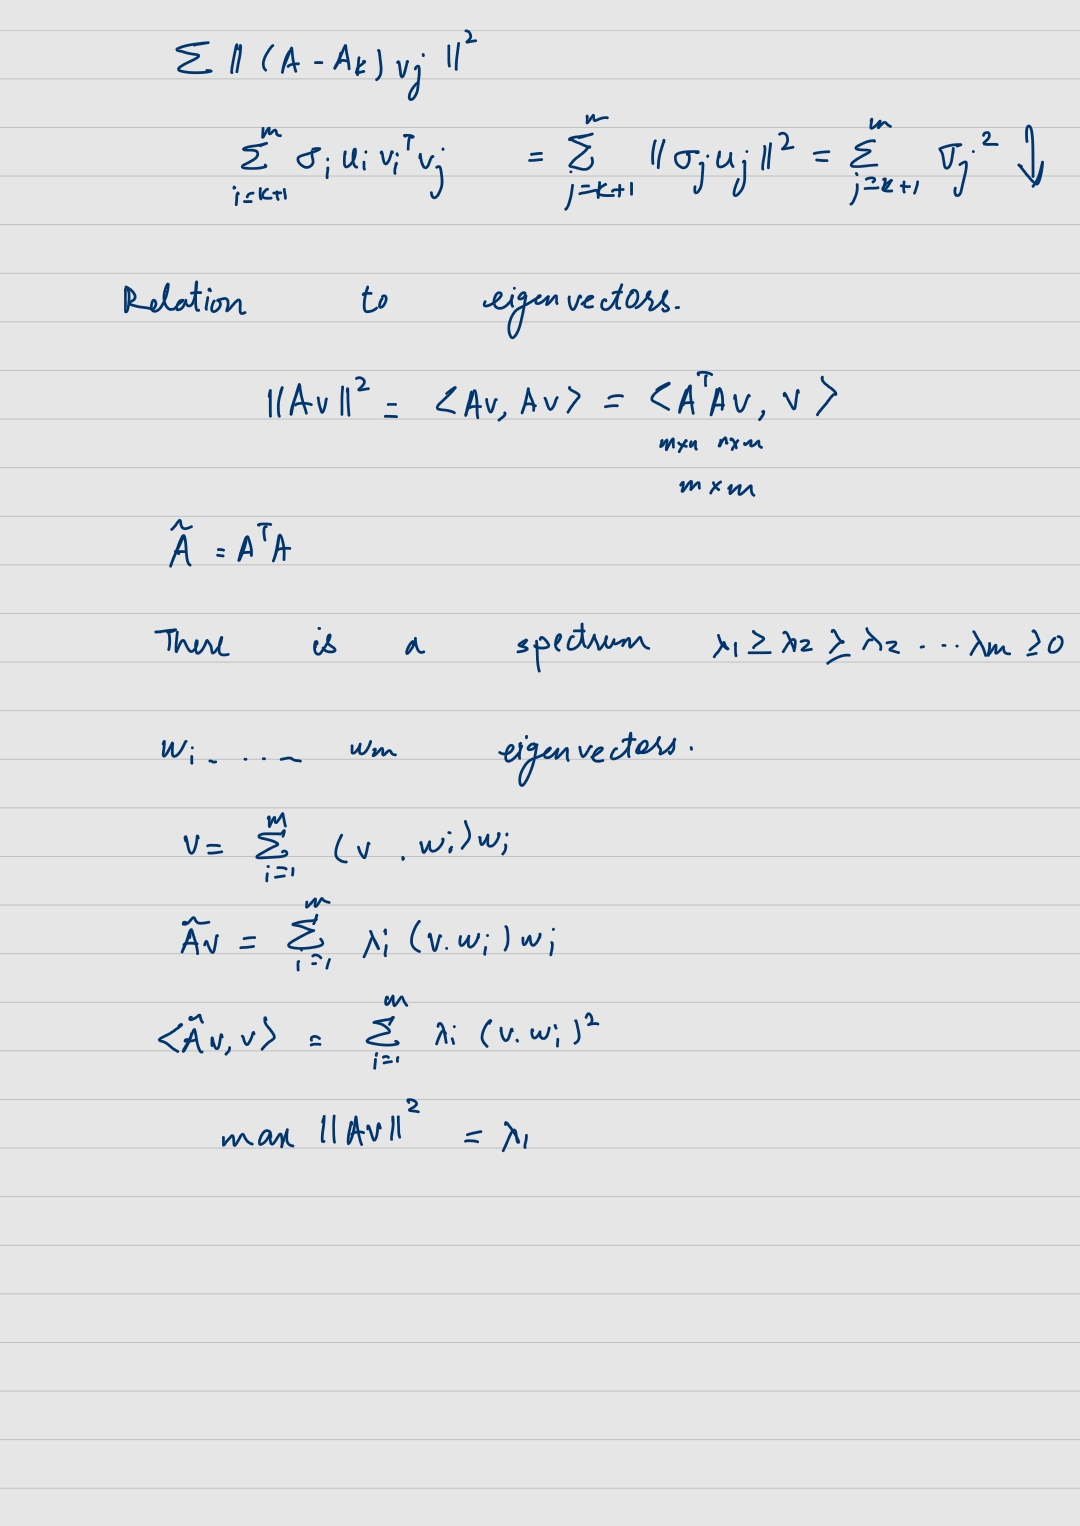 Σ ‖ (A - A_k) v_j ‖²
Σ_{i=k+1}^{m} σ_i u_i v_i^T v_j = Σ_{j=k+1}^{m} ‖ σ_j u_j ‖² = Σ_{j=k+1}^{m} σ_j² ↓
Relation to eigenvectors.
‖Av‖² = <Av, Av> = <A^T Av, v>
m×n n×m
m×m
Ã = A^T A
There is a spectrum λ1 ≥ λ2 ≥ λ2 .... λm ≥0
w_i ..... w_m eigenvectors.
v = Σ_{i=1}^{m} (v . w_i) w_i
Ãv = Σ_{i=1}^{m} λ_i (v.w_i) w_i
<Ãv, v> = Σ_{i=1}^{m} λ_i (v.w_i)²
max ‖Av‖² = λ1